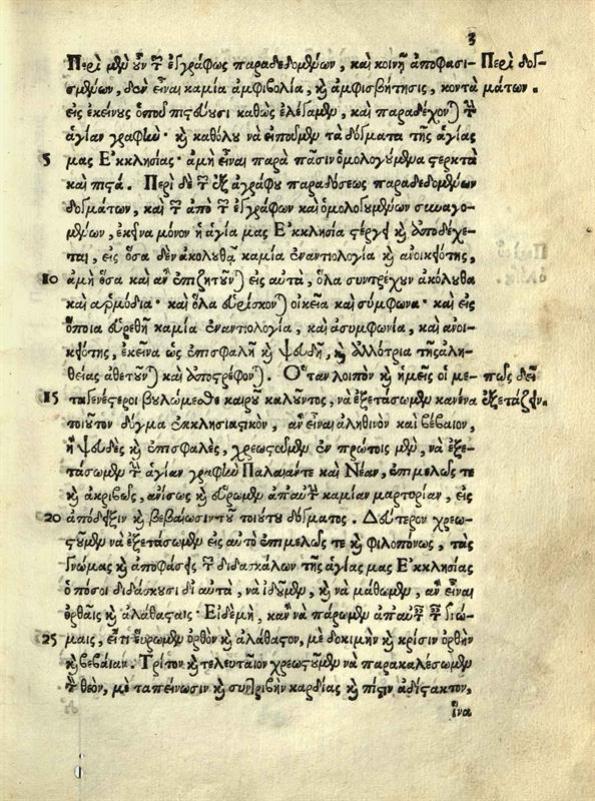 3
Περὶ μὲν οὖν τῶν ἐγγράφως παραδεδομένων, καὶ κοινῇ ἀποφασι- Περὶ δογ-
σμένων, δὲν εἶναι καμία ἀμφιβολία, καὶ ἀμφισβήτησις, κοντὰ μάτων.
εἰς ἐκείνους ὁποῦ πιστεύουσι καθὼς ἐλέγαμεν, καὶ παραδέχονται τὴν
ἁγίαν γραφὴν· καὶ καθόλου νὰ εἰποῦμεν τὰ δόγματα τῆς ἁγίας
5 μας Ἐκκλησίας· ἀμὴ εἶναι παρὰ πᾶσιν ὁμολογούμενα στερκτὰ
καὶ πιστά. Περὶ δὲ τῶν ἐξ ἀγράφου παραδόσεως παραδεδομένων
δογμάτων, καὶ τῶν ἀπὸ τῶν ἐγγράφων καὶ ὁμολογουμένων συναγο-
μένων, ἐκεῖνα μόνον ἡ ἁγία μας Ἐκκλησία στέργει καὶ ἀποδέχε-
ται, εἰς ὅσα δὲν ἀκολουθᾷ καμία ἐναντιολογία καὶ ἀνοικειότης,
10 ἀμὴ ὅσα καὶ ἂν ἐπιζητοῦνται εἰς αὐτὰ, ὅλα συντρέχουν ἀκόλουθα
καὶ ἁρμόδια· καὶ ὅλα εὑρίσκονται οἰκεῖα καὶ σύμφωνα· καὶ εἰς
ὅποια εὑρεθῇ καμία ἐναντιολογία, καὶ ἀσυμφωνία, καὶ ἀνοι-
κειότης, ἐκεῖνα ὡς ἐπισφαλῆ καὶ ψευδῆ, καὶ ἀλλότρια τῆς ἀλη-
θείας ἀθετοῦνται καὶ ἀποστρέφονται. Ὅταν λοιπὸν καὶ ἡμεῖς οἱ με- πῶς δεῖ
15 ταγενέστεροι βουλώμεσθε καιροῦ καλοῦντος, νὰ ἐξετάσωμεν κανένα ἐξετάζειν.
τοιοῦτον δόγμα ἐκκλησιαστικὸν, ἂν εἶναι ἀληθινὸν καὶ βέβαιον,
ἢ ψευδὲς καὶ ἐπισφαλὲς, χρεωστοῦμεν ἐν πρώτοις μὲν, νὰ ἐξε-
τάσωμεν τὴν ἁγίαν γραφὴν Παλαιάντε καὶ Νέαν, ἐπιμελῶς τε
καὶ ἀκριβῶς, ἀνίσως καὶ εὕρωμεν ἀπ' αὐτὴν καμίαν μαρτορίαν, εἰς
20 ἀπόδειξιν καὶ βεβαίωσιν τοῦ τοιούτου δόγματος. Δεύτερον χρεω-
στοῦμεν νὰ ἐξετάσωμεν εἰς αὐτὸ ἐπιμελῶς τε καὶ φιλοπόνως, τὰς
γνώμας καὶ ἀποφάσεις τῶν διδασκάλων τῆς ἁγίας μας Ἐκκλησίας
ὁπόσοι διδάσκουσι δι' αὐτὰ, νὰ ἰδοῦμεν, καὶ νὰ μάθωμεν, ἂν εἶναι
ὀρθαῖς καὶ ἀλάθασταις· Εἰδεμὴ, κἂν νὰ πάρωμεν ἀπ' αὐτῶν τῶν γνώ-
25 μαις, εἴτι εὕρωμεν ὀρθὸν καὶ ἀλάθαστον, μὲ δοκιμὴν καὶ κρίσιν ὀρθὴν
καὶ βεβαίαν. Τρίτον καὶ τελευταῖον χρεωστοῦμεν νὰ παρακαλέσωμεν
τὸν θεὸν, μὲ ταπείνωσιν καὶ συντριβὴν καρδίας καὶ πίστιν ἀδίστακτον,
ἵνα